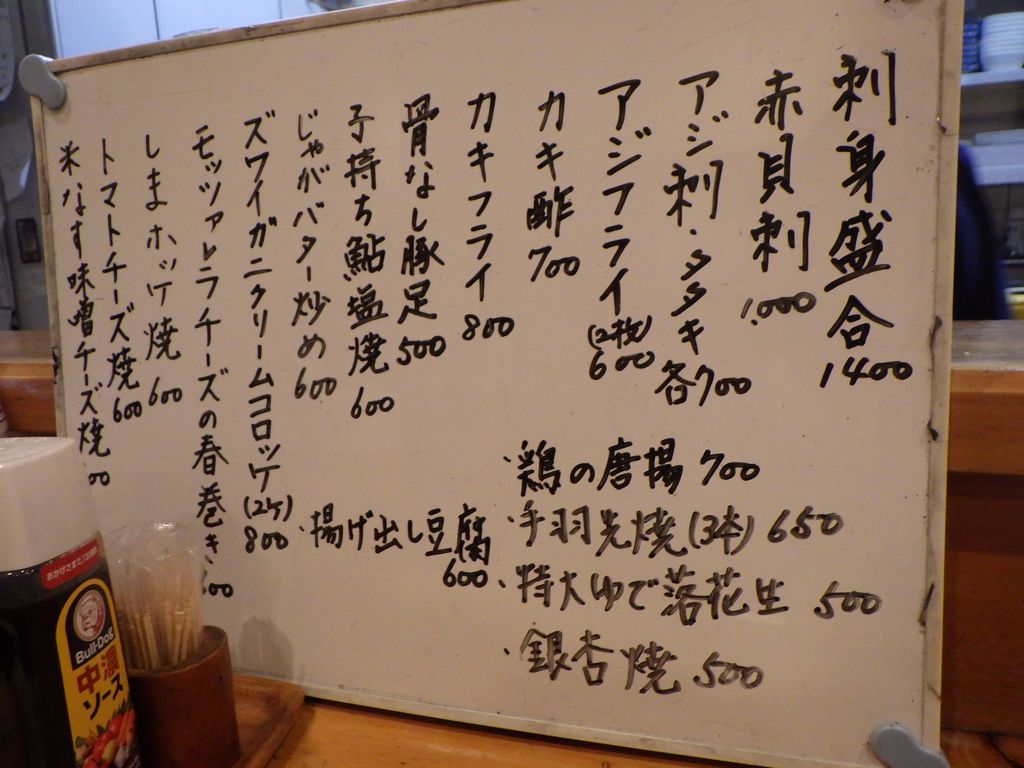 刺身盛合 1400
赤貝刺 1.000
アジ刺・タタキ 各700
アジフライ (2枚) 600
カキ酢 700
カキフライ 800
骨なし豚足 500
子持ち鮎塩焼 600
じゃがバター炒め 600
ズワイガニクリームコロッケ (2ケ) 800
モッツァレラチーズの春巻き 00
しまホッケ焼 600
トマトチーズ焼 600
米なす味噌チーズ焼 00
・鶏の唐揚 700
・手羽先焼(3本) 650
・特大ゆで落花生 500
・銀杏焼 500
・揚げ出し豆腐 600
おかげさまで、120周年
Bull-Dog
中濃
ソース